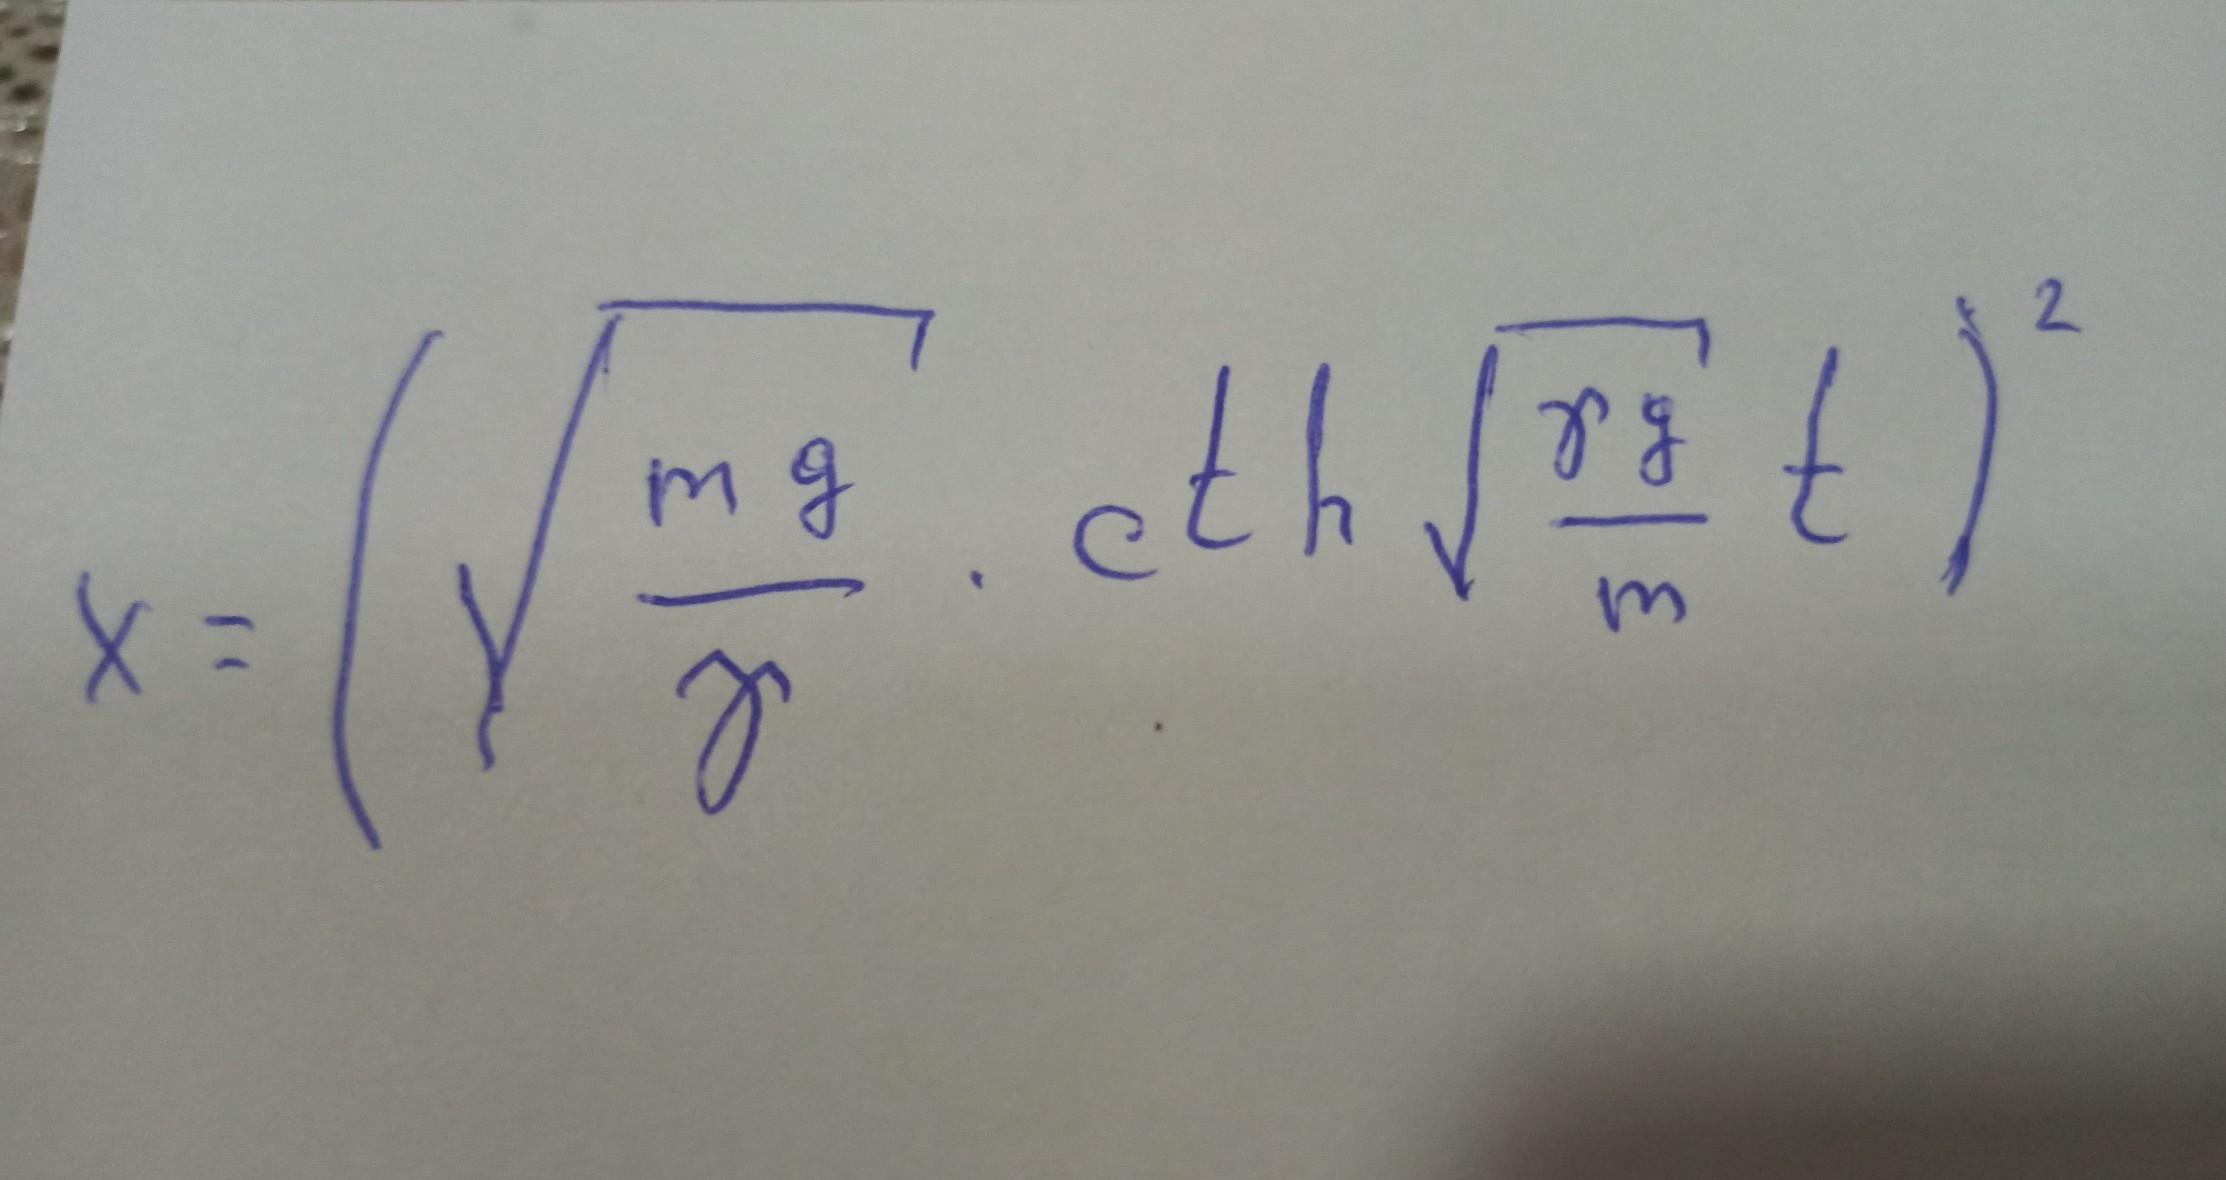 x = ( √(mg/γ) . cth √(γg/m) t )²